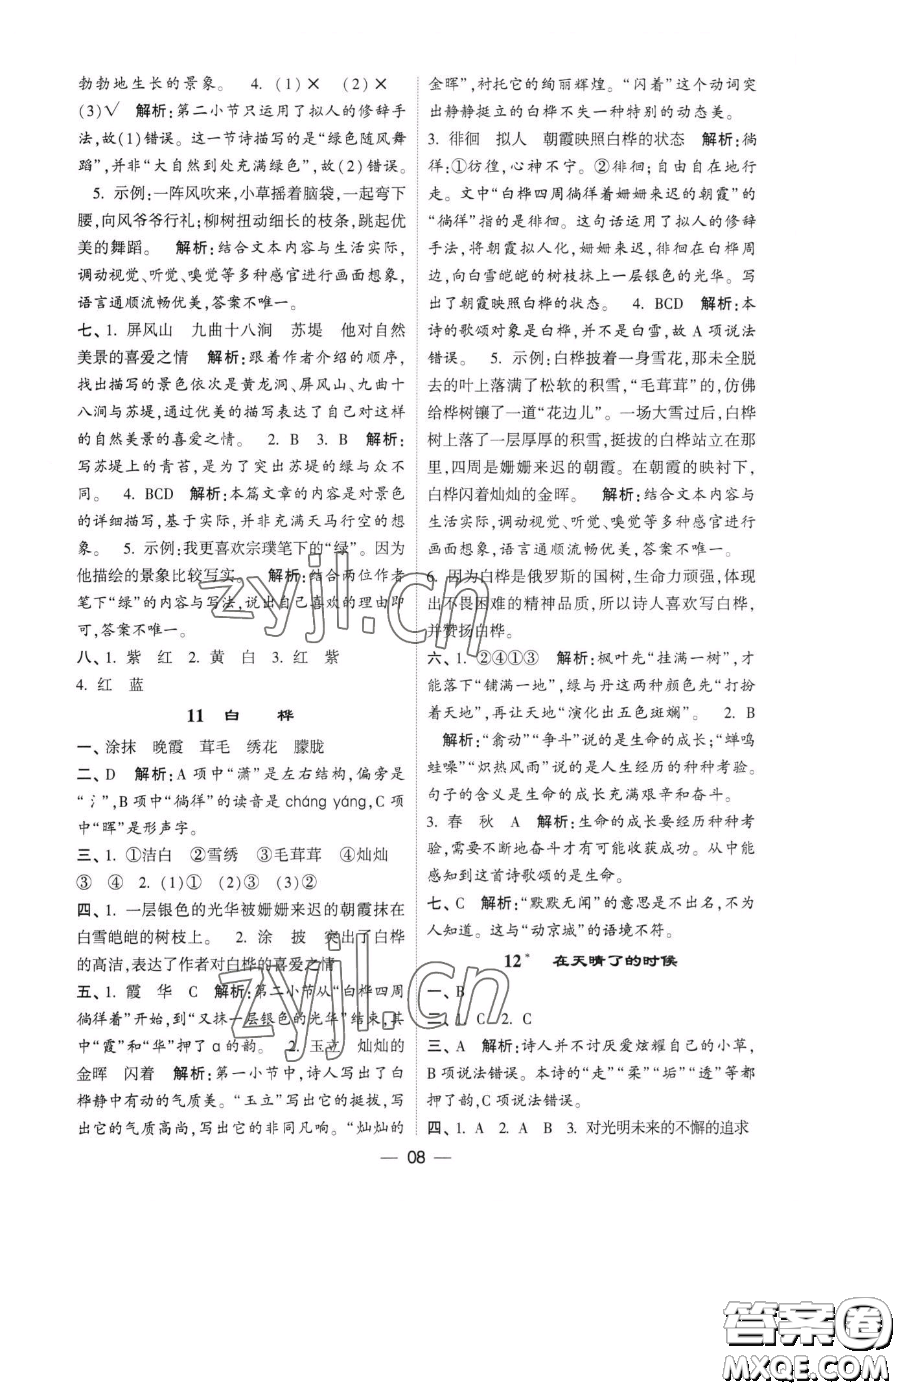 勃勃地生长的景象。 4. (1)× (2)×
(3)√ 解析:第二小节只运用了拟人的修辞手
法,故(1)错误。这一节诗描写的是“绿色随风舞
蹈”,并非“大自然到处充满绿色”,故(2)错误。
5. 示例:一阵风吹来,小草摇着脑袋,一起弯下
腰,向风爷爷行礼;柳树扭动细长的枝条,跳起优
美的舞蹈。 解析:结合文本内容与生活实际,
调动视觉、听觉、嗅觉等多种感官进行画面想象,
语言通顺流畅优美,答案不唯一。
七、1. 屏风山 九曲十八涧 苏堤 他对自然
美景的喜爱之情 解析:跟着作者介绍的顺序,
找出描写的景色依次是黄龙洞、屏风山、九曲十
八涧与苏堤,通过优美的描写表达了自己对这样
的自然美景的喜爱之情。 2. B 3. B 解析:
写苏堤上的青苔,是为了突出苏堤的绿与众不
同。 4. BCD 解析:本篇文章的内容是对景色
的详细描写,基于实际,并非充满天马行空的想
象。 5. 示例:我更喜欢宗璞笔下的“绿”。因为
他描绘的景象比较写实。 解析:结合两位作者
笔下“绿”的内容与写法,说出自己喜欢的理由即
可,答案不唯一。
八、1. 紫 红 2. 黄 白 3. 红 紫
4. 红 蓝
11 白 桦
一、涂抹 晚霞 茸毛 绣花 朦胧
二、D 解析:A项中“潇”是左右结构,偏旁是
“氵”,B项中“徜徉”的读音是 cháng yáng,C项
中“晖”是形声字。
三、1. ①洁白 ②雪绣 ③毛茸茸 ④灿灿
③ ④ 2. (1)① (2)③ (3)②
四、1. 一层银色的光华被姗姗来迟的朝霞抹在
白雪皑皑的树枝上。 2. 涂 披 突出了白桦
的高洁,表达了作者对白桦的喜爱之情
五、1. 霞 华 C 解析:第二小节从“白桦四周
徜徉着”开始,到“又抹一层银色的光华”结束,其
中“霞”和“华”押了ɑ的韵。 2. 玉立 灿灿的
金晖 闪着 解析:第一小节中,诗人写出了白
桦静中有动的气质美。“玉立”写出它的挺拔,写
出它的气质高尚,写出它的非同凡响。“灿灿的
金晖”,衬托它的绚丽辉煌。“闪着”这个动词突
出静静挺立的白桦不失一种特别的动态美。
3. 徘徊 拟人 朝霞映照白桦的状态 解析:徜
徉:①彷徨,心神不宁。②徘徊;自由自在地行
走。文中“白桦四周徜徉着姗姗来迟的朝霞”的
“徜徉”指的是徘徊。这句话运用了拟人的修辞
手法,将朝霞拟人化,姗姗来迟,徘徊在白桦周
边,向白雪皑皑的树枝抹上一层银色的光华。写
出了朝霞映照白桦的状态。 4. BCD 解析:本
诗的歌颂对象是白桦,并不是白雪,故A项说法
错误。 5. 示例:白桦披着一身雪花,那未全脱
去的叶上落满了松软的积雪,“毛茸茸”的,仿佛
给桦树镶了一道“花边儿”。一场大雪过后,白桦
树上落了一层厚厚的积雪,挺拔的白桦站立在那
里,四周是姗姗来迟的朝霞。在朝霞的映衬下,
白桦闪着灿灿的金晖。 解析:结合文本内容与
生活实际,调动视觉、听觉、嗅觉等多种感官进行
画面想象,语言通顺流畅优美,答案不唯一。
6. 因为白桦是俄罗斯的国树,生命力顽强,体现
出不畏困难的精神品质,所以诗人喜欢写白桦,
并赞扬白桦。
六、1. ②④①③ 解析:枫叶先“挂满一树”,才
能落下“铺满一地”,绿与丹这两种颜色先“打扮
着天地”,再让天地“演化出五色斑斓”。 2. B
解析:“翕动”“争斗”说的是生命的成长;“蝉鸣
蛙噪”“炽热风雨”说的是人生经历的种种考验。
句子的含义是生命的成长充满艰辛和奋斗。
3. 春 秋 A 解析:生命的成长要经历种种考
验,需要不断地奋斗才有可能收获成功。从中能
感知到这首诗歌颂的是生命。
七、C 解析:“默默无闻”的意思是不出名,不为
人知道。这与“动京城”的语境不符。
12* 在天晴了的时候
一、B
二、1. C 2. C
三、A 解析:诗人并不讨厌爱炫耀自己的小草,
B项说法错误。本诗的“走”“柔”“垢”“透”等都
押了韵,C项说法错误。
四、1. A 2. A B 3. 对光明未来的不懈的追求
— 08 —
zyjl.cn
zyjl.cn
答案圈
MXQE.COM